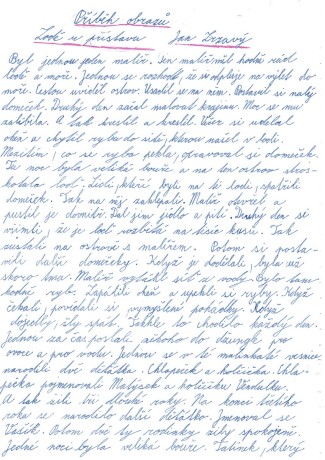 Příběh obrazů
Lodě u přístavu Jan Zrzavý
Byl jednou jeden malíř. Ten malíř měl hodně rád
lodě a moře. Jednou se rozhodl, že odpluje na výlet do
moře. Cestou uviděl ostrov. Usadil se na něm. Postavil si malý
domeček. Druhý den začal malovat krajinu. Moc se mu
zalíbila. A tak kreslil a kreslil. Večer si udělal
oheň a chytil rybu do sítě, kterou našel v lodi.
Mezitím, co se ryba pekla, opravoval si domeček.
Tu noc byla veliká bouře a na ten ostrov ztros-
kotala loď. Lidi, kteří byli na té lodi, spatřili
domeček. Tak na něj zaklepali. Malíř otevřel a
pustil je dovnitř. Dal jim jídlo a pití. Druhý den si
všimli, že je loď rozbitá na tisíce kusů. Tak
zůstali na ostrově s malířem. Potom si posta-
vili další domečky. Když je dodělali, byla už
skoro tma. Malíř vytáhl síť z vody. Bylo tam
hodně ryb. Zapálili oheň a upekli si ryby. Když
čekali, povídali si vymyšlené pohádky. Když
dojedli, šli spát. Takhle to chodilo každý den.
Jednou za čas poslali někoho do džungle pro
ovoce a pro vodu. Jednou se v té malinkaté vesnice
narodili dvě děťátka. Chlapeček a holčička. Chla-
pečka pojmenovali Matýsek a holčičku
A tak žili tři dlouhé roky. Na konci třetího
roku se narodilo další děťátko. Jmenoval se
Vašík. Potom dvě ty rodinky žily spokojeně.
Jedné noci byla veliká bouře. Tatínek, který